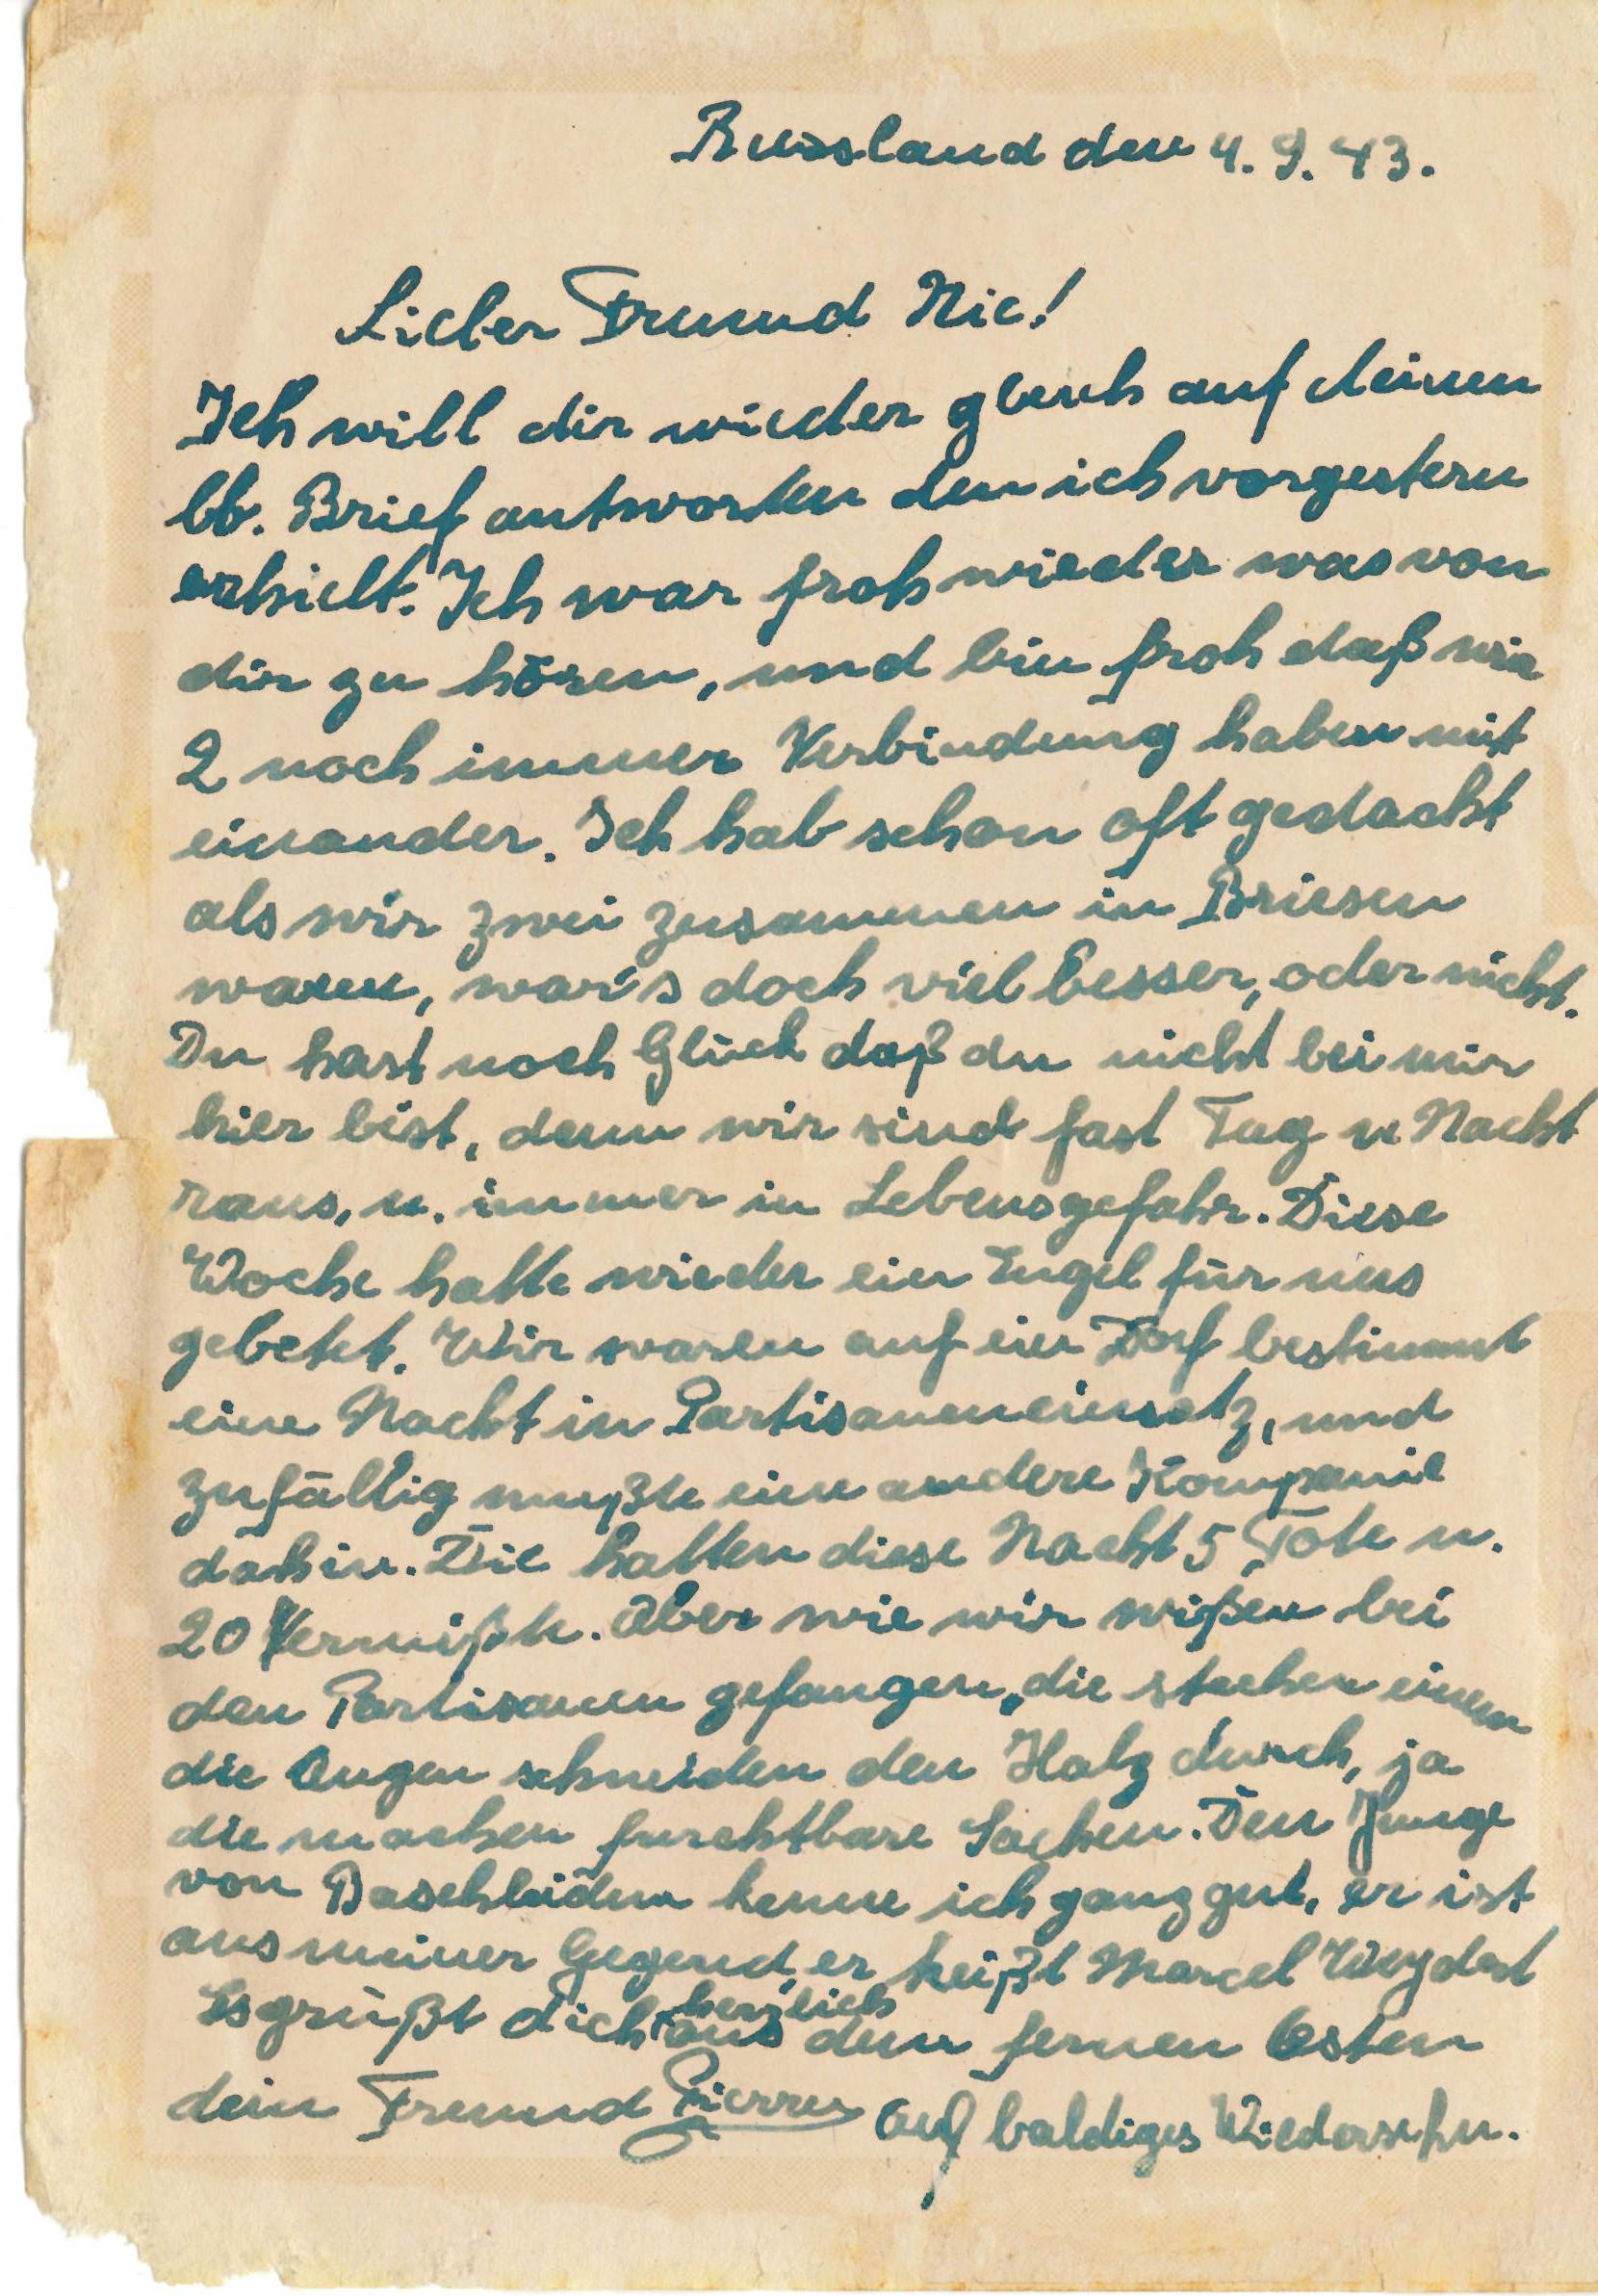 Russland den 4.9.43.
Lieber Freund Nic!
Ich will dir wieder gleich auf deinen
lb. Brief antworten den ich vorgestern
erhielt. Ich war froh wieder was von
dir zu hören, und bin froh daß wir
2 noch immer Verbindung haben mit
einander. Ich hab schon oft gedacht
als wir zwei zusammen in Briesen
waren, war's doch viel besser, oder nicht.
Du hast noch Glück daß du nicht bei mir
hier bist, denn wir sind fast Tag u Nacht
raus, u. immer in Lebensgefahr. Diese
Woche hatte wieder ein Engel für uns
gebetet. Wir waren auf ein Dorf bestimmt
eine Nacht in Partisaneneinsatz, und
zufällig mußte eine andere Kompanie
dahin. Die hatten diese Nacht 5 Tote u.
20 Vermißte. Aber wie wir wißen bei
den Partisanen gefangen, die stechen einem
die Augen schneiden den Halz durch, ja
die machen furchtbare Sachen. Den Junge
von Baschleiden kenne ich ganz gut, er ist
aus meiner Gegend, er heißt Marcel Weydert
Es grüßt dich herzlich aus dem fernen Osten
dein Freund Pierre auf baldiges Wiedersehn.